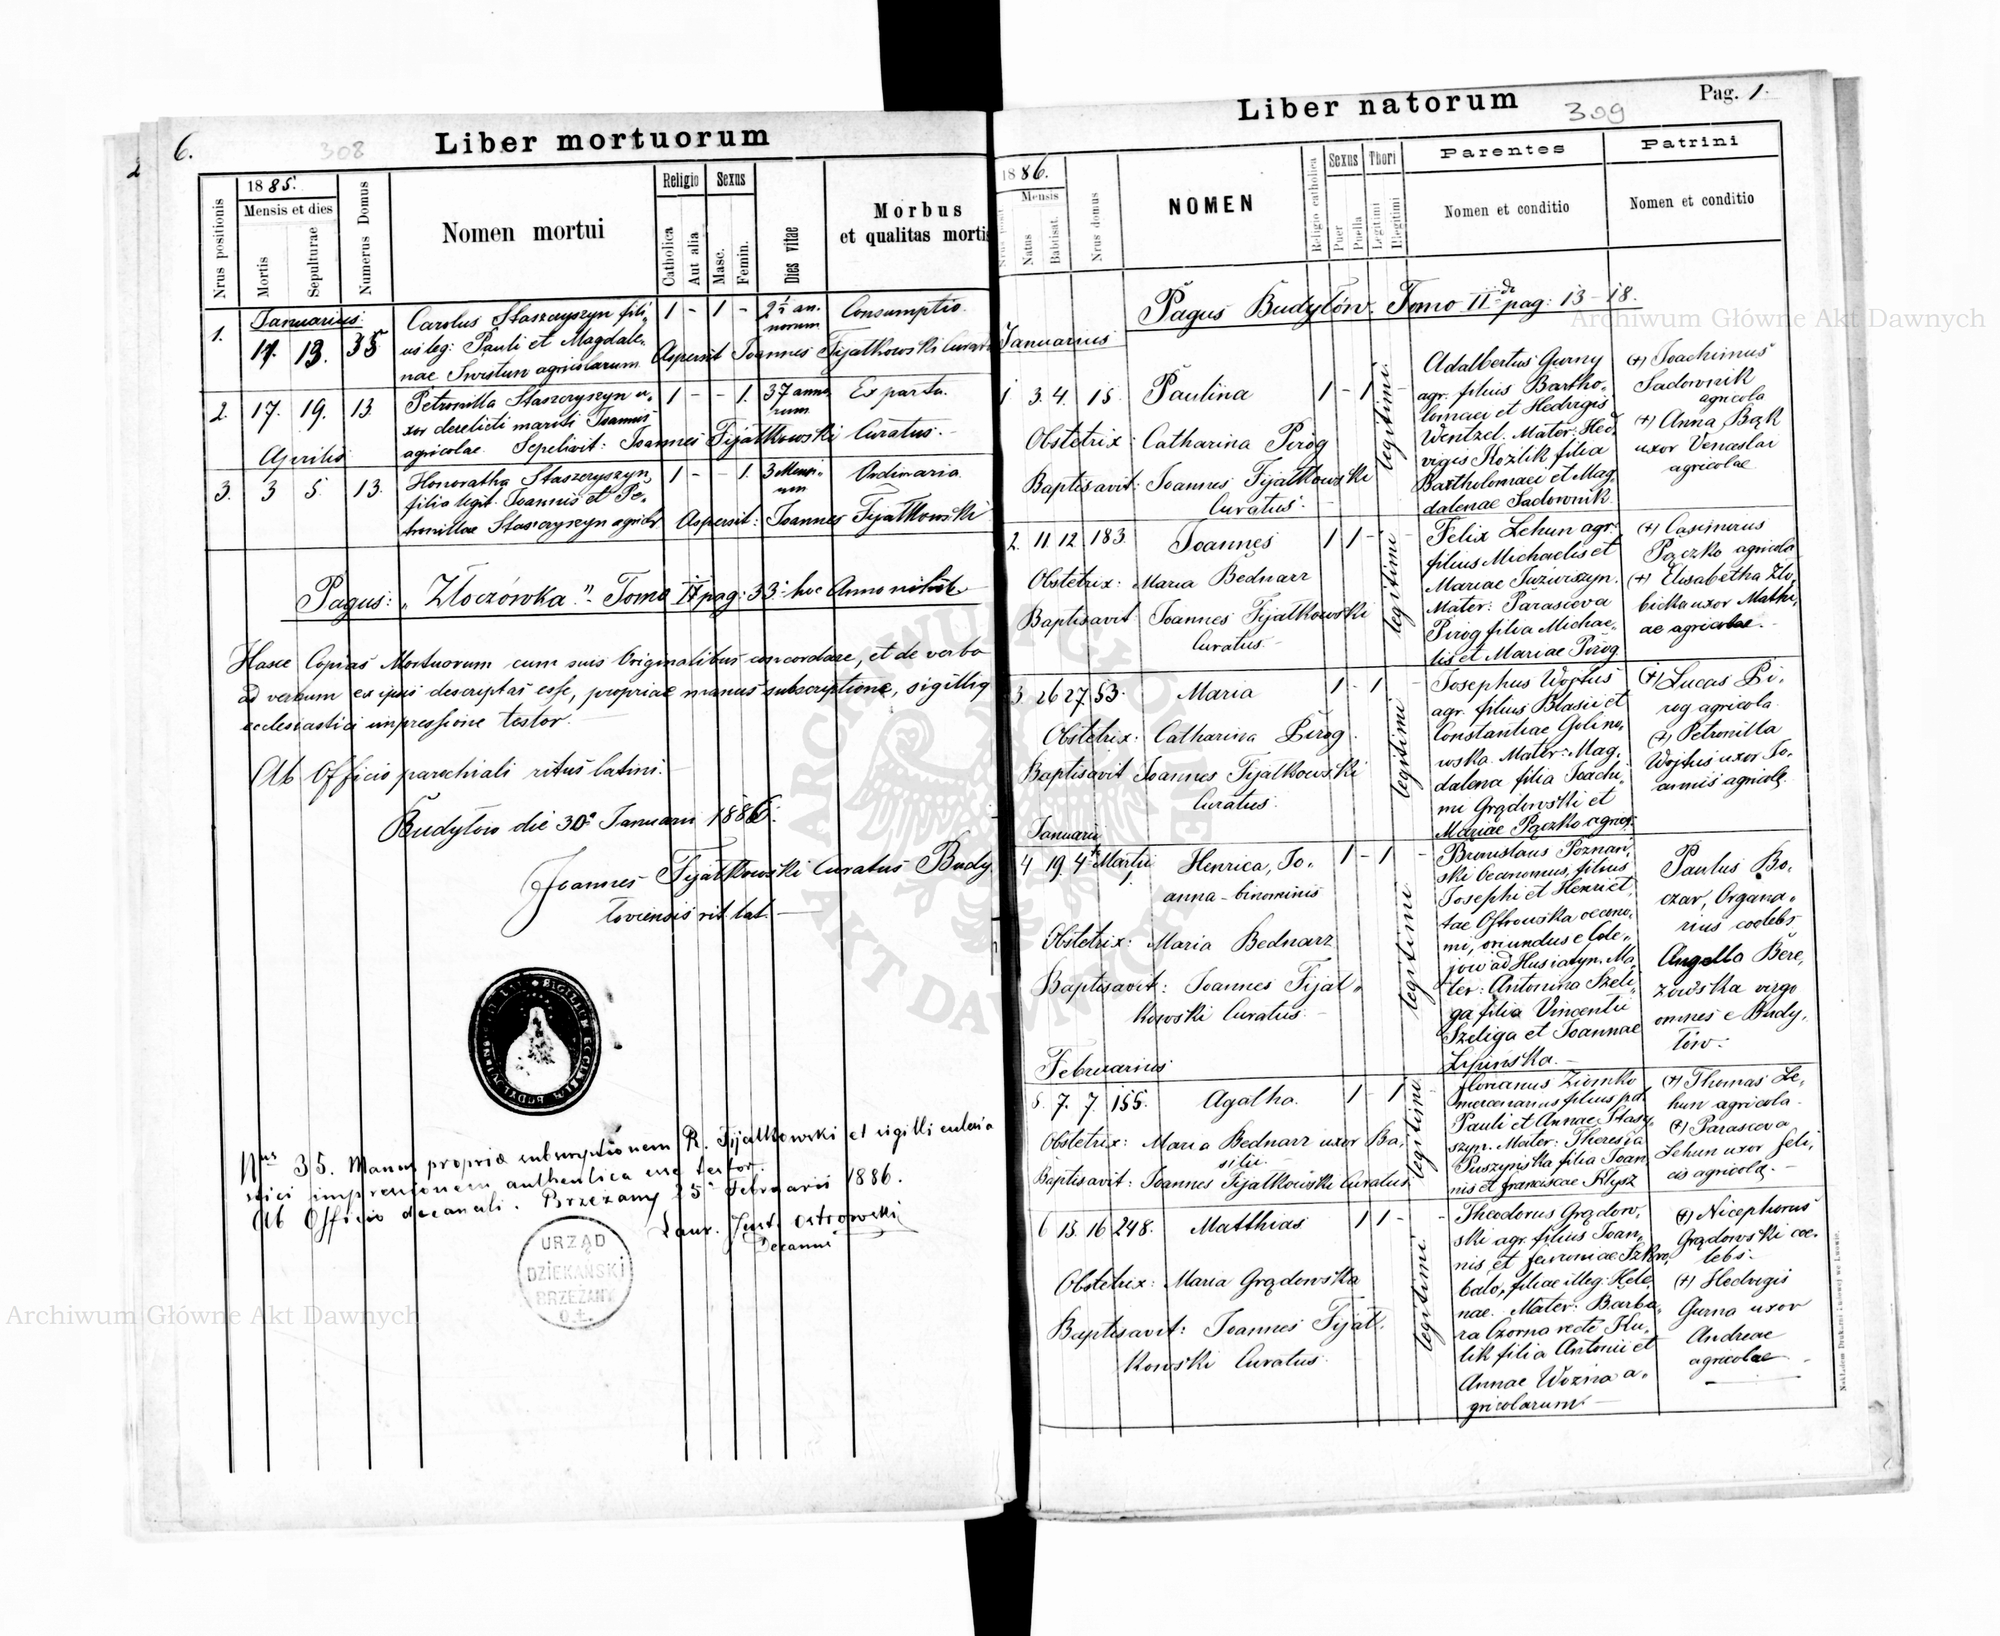 6.
308
Liber mortuorum
Nrus positionis
1885.
Mensis et dies
Mortis
Sepulturae
Numerus Domus
Nomen mortui
Religio
Catholica
Aut alia
Sexus
Masc.
Femin.
Dies vitae
Morbus
et qualitas mortis
Januarius
1. 17. 19. 35
Carolus Staszczyszyn fili-
us leg: Pauli et Magdale-
nae agricolarum
1 - 1 -
2½ an-
norum
Consumptio.
Aspersit Joannes Fijałkowski Curatus
2. 17. 19. 13.
Petronilla Staszczyszyn u-
xor derelicti mariti Joannis
agricolae. Sepelivit: Joannes Fijałkowski Curatus.
1 - - 1.
37 anno-
rum
Ex partu.
Aprilis
3. 3 5. 13.
Honoratha Staszczyszyn
filia legit. Joannis et Pe-
tronillae Staszczyszyn agricol.
1 - - 1.
3 Mensi-
um
Ordinaria
Aspersit: Joannes Fijałkowski
Pagus: "Złoczówka." Tomo II pag: 33. hoc Anno
Hasce Copias Mortuorum cum suis Originalibus concordare, et de verbo
ad verbum ex ipsis descriptas esse, propriae manus subscriptione, sigilliq
ecclesiastici impressione testor.
Ab Officio parochiali ritus latini.
Budyłów die 30a Januarii 1886.
Joannes Fijałkowski Curatus Budy
łoviensis rit. lat.
Nrus 35. Manus propriae subscriptionem R. Fijałkowski et sigilli eclesia
stici impressionem authentica esse testor.
Ab Officio decanali. Brzeżany 25a Februarii 1886.
Laur. Just. Ostrowski
Decanus
URZĄD
DZIEKAŃSKI
BRZEŻANY
O.Ł.
Liber natorum
309
Pag. 1.
1886.
Mensis
Natus
Babtisat.
Nrus domus
NOMEN
Religio catholica
Sexus
Puer
Puella
Thori
Legitimi
Illegitimi
Parentes
Nomen et conditio
Patrini
Nomen et conditio
Pagus Budyłów. Tomo II de pag: 13 - 18.
Januarius
1 3. 4. 15. Paulina 1 - 1 -
legitimi
Obstetrix: Catharina Pirog
Baptisavit: Joannes Fijałkowski
Curatus.
Adalbertus Gurny
agr. filius Bartho-
lomaei et Hedvigis
Wentzel. Mater: Hed-
vigis Kozlik filia
Bartholomaei et Mag-
dalenae Sadownik.
(+) Joachimus
Sadownik
agricola
(+) Anna Bąk
uxor Venceslai
agricolae
2. 11. 12. 183. Joannes 1 1 - -
legitimi
Obstetrix: Maria Bednarz
Baptisavit: Joannes Fijałkowski
Curatus.
Felix Lehun agr.
filius Michaelis et
Mariae
Mater: Parasceva
Pirog filia Michae-
lis et Mariae Pirog
(+) Casimirus
Pączko agricola
(+) Elisabetha Zło-
bicka uxor Mathi-
ae agricolae.
3. 26 27. 53. Maria 1 - 1 -
legitimi
Obstetrix: Catharina Pirog.
Baptisavit Joannes Fijałkowski
Curatus.
Josephus Wojtus
agr. filius Blasii et
Constantiae Golino-
wska. Mater: Mag-
dalena filia Joachi-
mi Grądowski et
Mariae Pączko agricol.
(+) Lucas Pi-
rog agricola.
(+) Petronilla
Wojtus uxor Jo-
annis agricolę.
Januarii
4 19. 4ta Martii Henrica, Jo-
anna - binominis
1 - 1 -
legitimi
Obstetrix: Maria Bednarz
Baptisavit: Joannes Fijał-
kowski Curatus.
Bronislaus Poznań-
ski Oeconomus, filius
Josephi et Henriet-
tae Ostrowska oecono-
mi, oriundus e Cole-
jow ad Husiatyn. Ma-
ter: Antonina Szeli-
ga filia Vincentii
Szeliga et Joannae
Lipińska.
Paulus Bo-
czar, Organa-
rius coelebs
Angella Bere-
zowska virgo
omnes e Budy-
łów.
Februarius
5. 7. 7. 155. Agatha. 1 - 1 -
legitimi
Obstetrix: Maria Bednarz uxor Ba-
silii.
Baptisavit: Joannes Fijałkowski Curatus.
Florianus Ziomko
mercenarius filius
Pauli et Annae Stasz-
szyn. Mater: Theresia
Puszyńska filia Joan-
nis et Franciscae Kłysz
(+) Thomas Le-
hun agricola.
(+) Parasceva
Lehun uxor Feli-
cis agricolę.
6 15. 16 248. Matthias 1 1 - -
legitimi
Obstetrix: Maria Grądowska
Baptisavit: Joannes Fijał-
kowski Curatus.
Theodorus Grądow-
ski agr. filius Joan-
nis et Fevroniae
filiae illeg: Hele-
nae. Mater: Barba-
ra Czorna recte Ku-
lik filia Antonii et
Annae Wozna a-
gricolarum.
(+) Nicephorus
Grądowski coe-
lebs.
(+) Hedvigis
Gurna uxor
Andreae
agricolae
Archiwum Główne Akt Dawnych
Archiwum Główne Akt Dawnych
ARCHIWUM GŁÓWNE AKT DAWNYCH